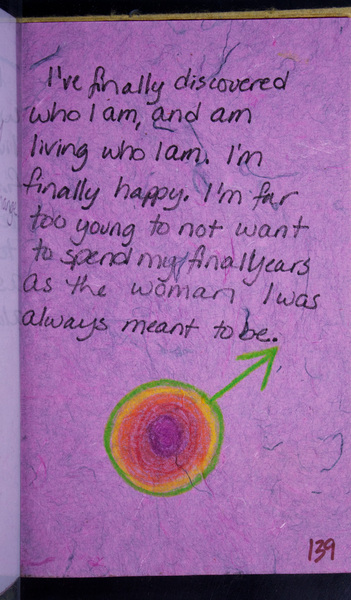 I've finally discovered
who I am, and am
living who I am. I'm
finally happy. I'm far
too young to not want
to spend my final years
as the woman I was
always meant to be.
139